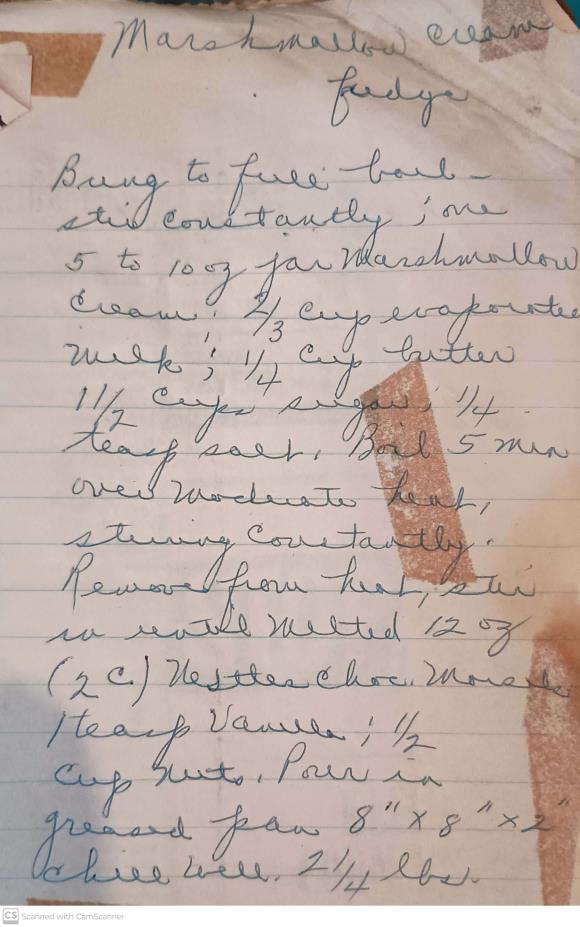 Marshmallow cream
fudge
Bring to full boil -
stir constantly; one
5 to 10 oz jar Marshmallow
Cream; 2/3 cup evaporated
Milk; 1/4 Cup butter
1 1/2 Cups sugar; 1/4
teasp salt. Boil 5 min
over Moderate heat,
stirring Constantly.
Remove from heat, stir
in until Melted 12 oz
(2 C.) Nestles Choc. Morsels
1 teasp Vanilla; 1/2
Cup Nuts. Pour in
greased pan 8" x 8" x 2"
Chill well. 2 1/4 lbs.
CS Scanned with CamScanner